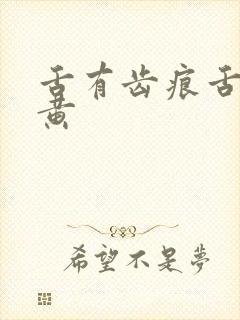 舌有齿痕舌
黄
希望不是夢